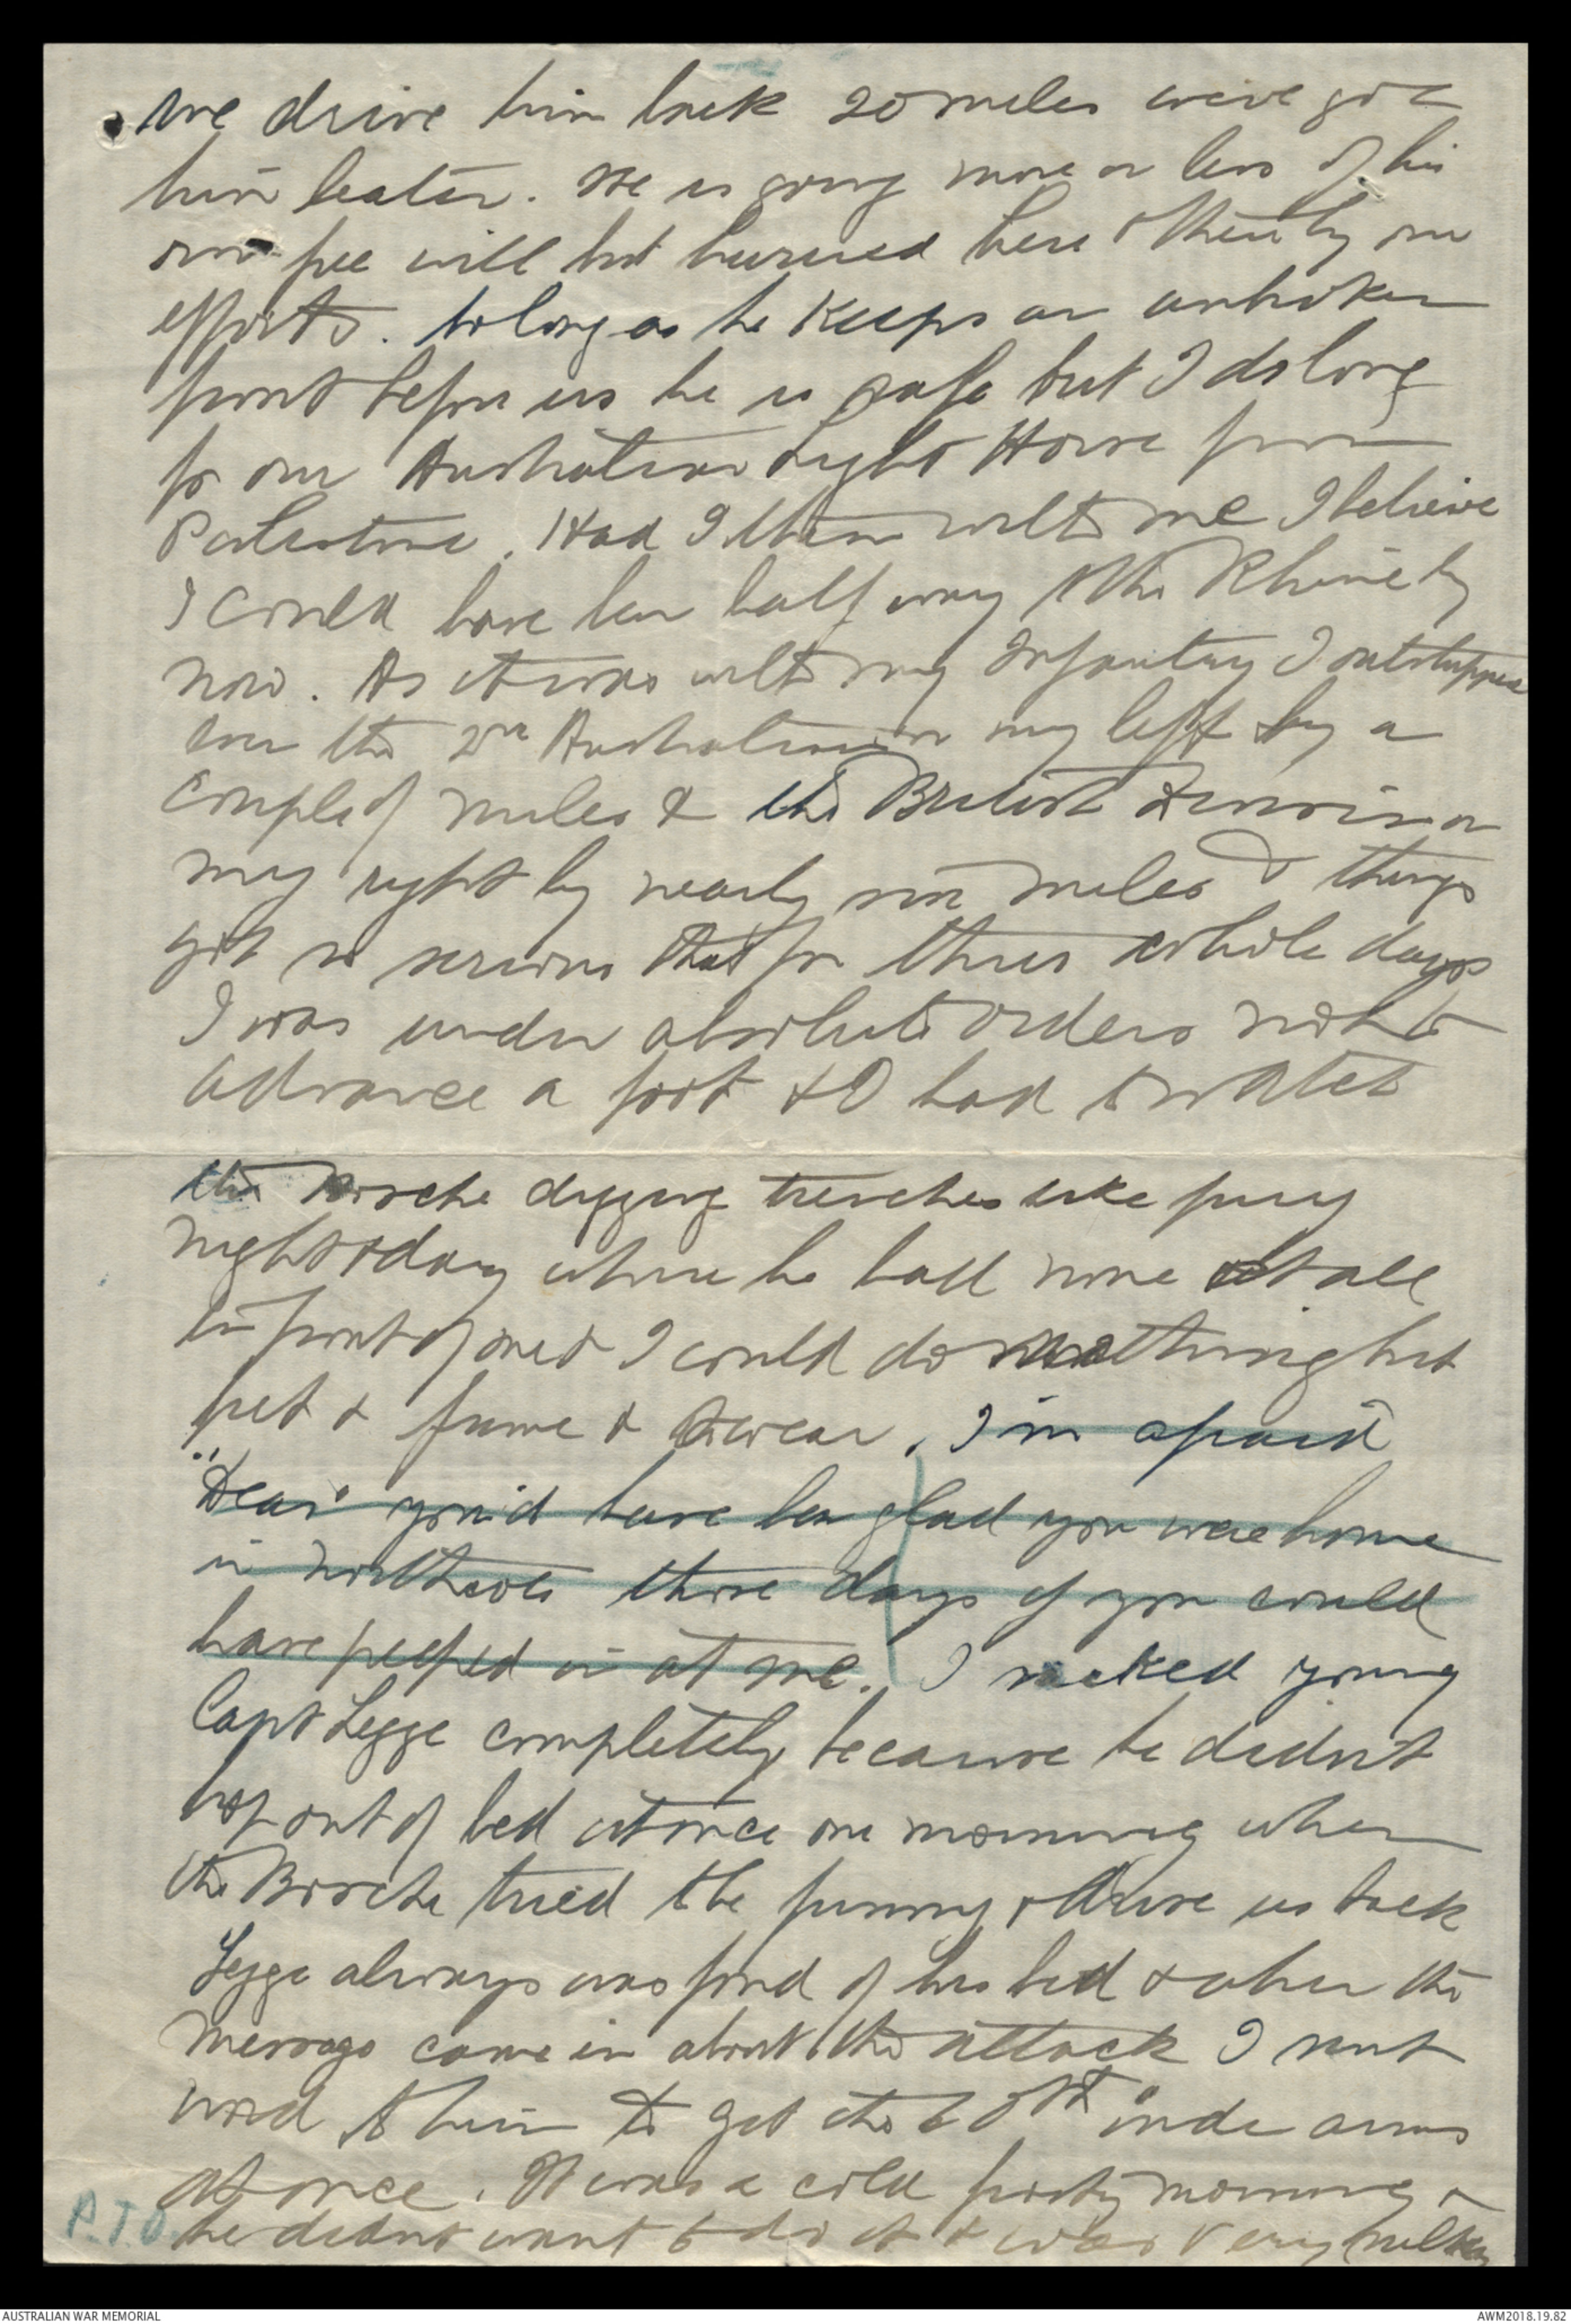 we drive him back 20 miles weve got
him beaten. He is going more or less of his
own free will but hurried here & there by our
efforts. So long as he keeps an unbroken
front before us he is safe but I do long
for our Australian Light Horse from
Palestine. Had I them with me I believe
I could have been half way to the Rhine by
now. As it was with my Infantry I outstripped
even the 2nd Australian on my left by a
couple of miles & the British Division on
my right by nearly six miles & things
got so serious that for three whole days
I was under absolute orders not to
advance a foot & I had to watch
the Bosche digging trenches like fury
night & day where he had none at all
in front of me & I could do nothing but
fret & fume & swear. I'm afraid
"Dear" you'd have been glad you were home
in Northcote those days if you could
have peeped in at me. I sacked young
Capt Legge completely because he didnt
hop out of bed at once one morning when
the Bosche tried the funny & drove us back
Legge always was fond of his bed & when the
message came in about the attack I sent
word to him to get the 60th under arms
at once. It was a cold frosty morning &
he didnt want to do it & was very sulky
P.T.O.
AUSTRALIAN WAR MEMORIAL
AWM2018.19.82